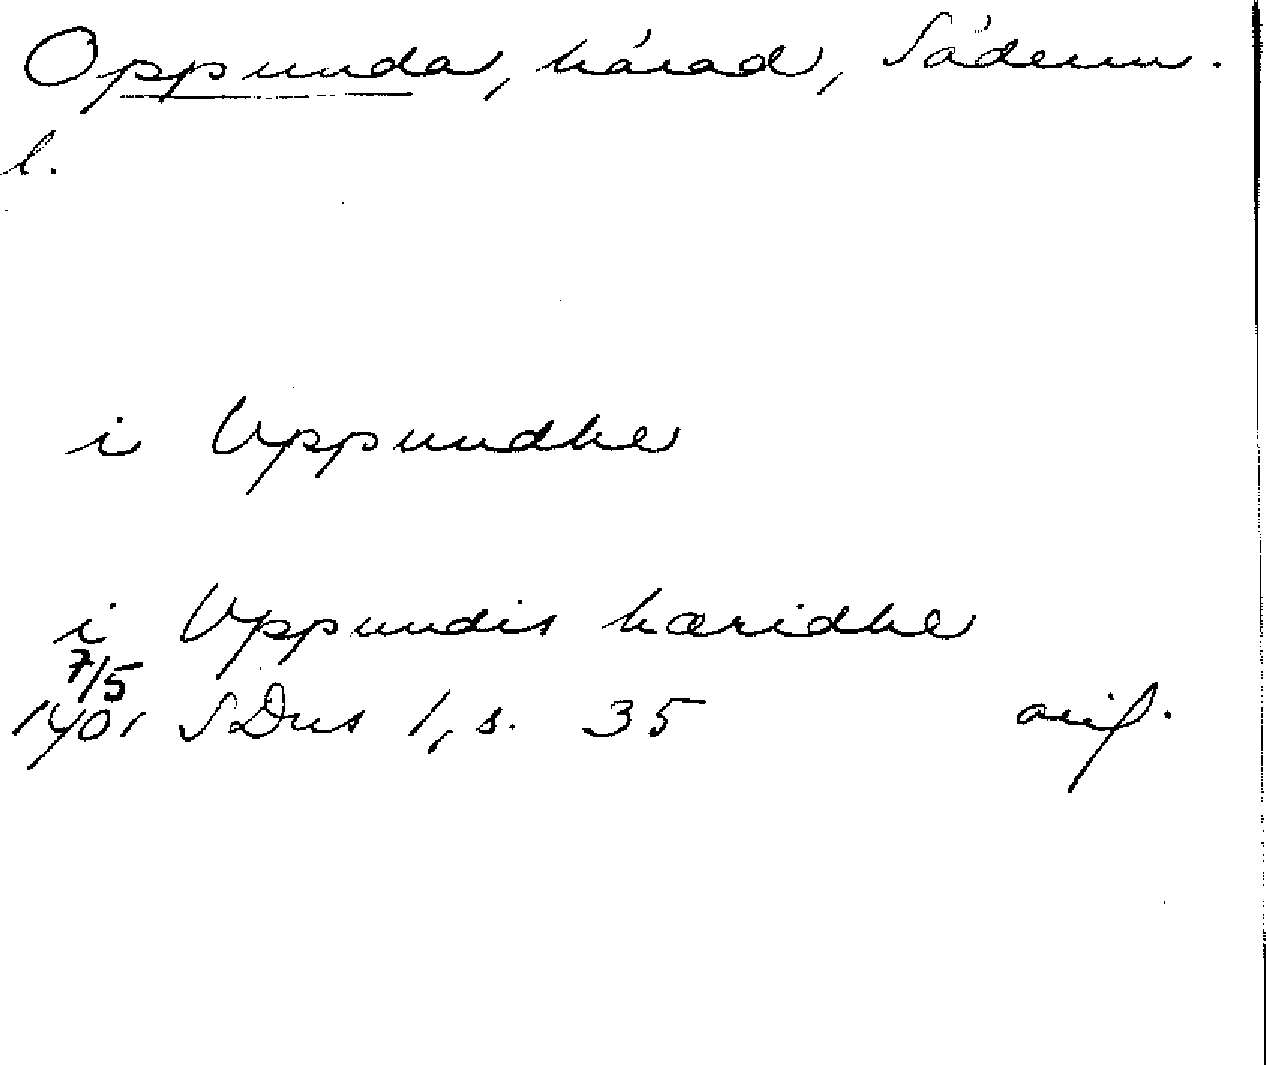 Oppunda, härad, Söderm.
l.
i Vppundhe
i Vppundis hæridhe
7/5
1401 SDns 1, s. 35 avif.